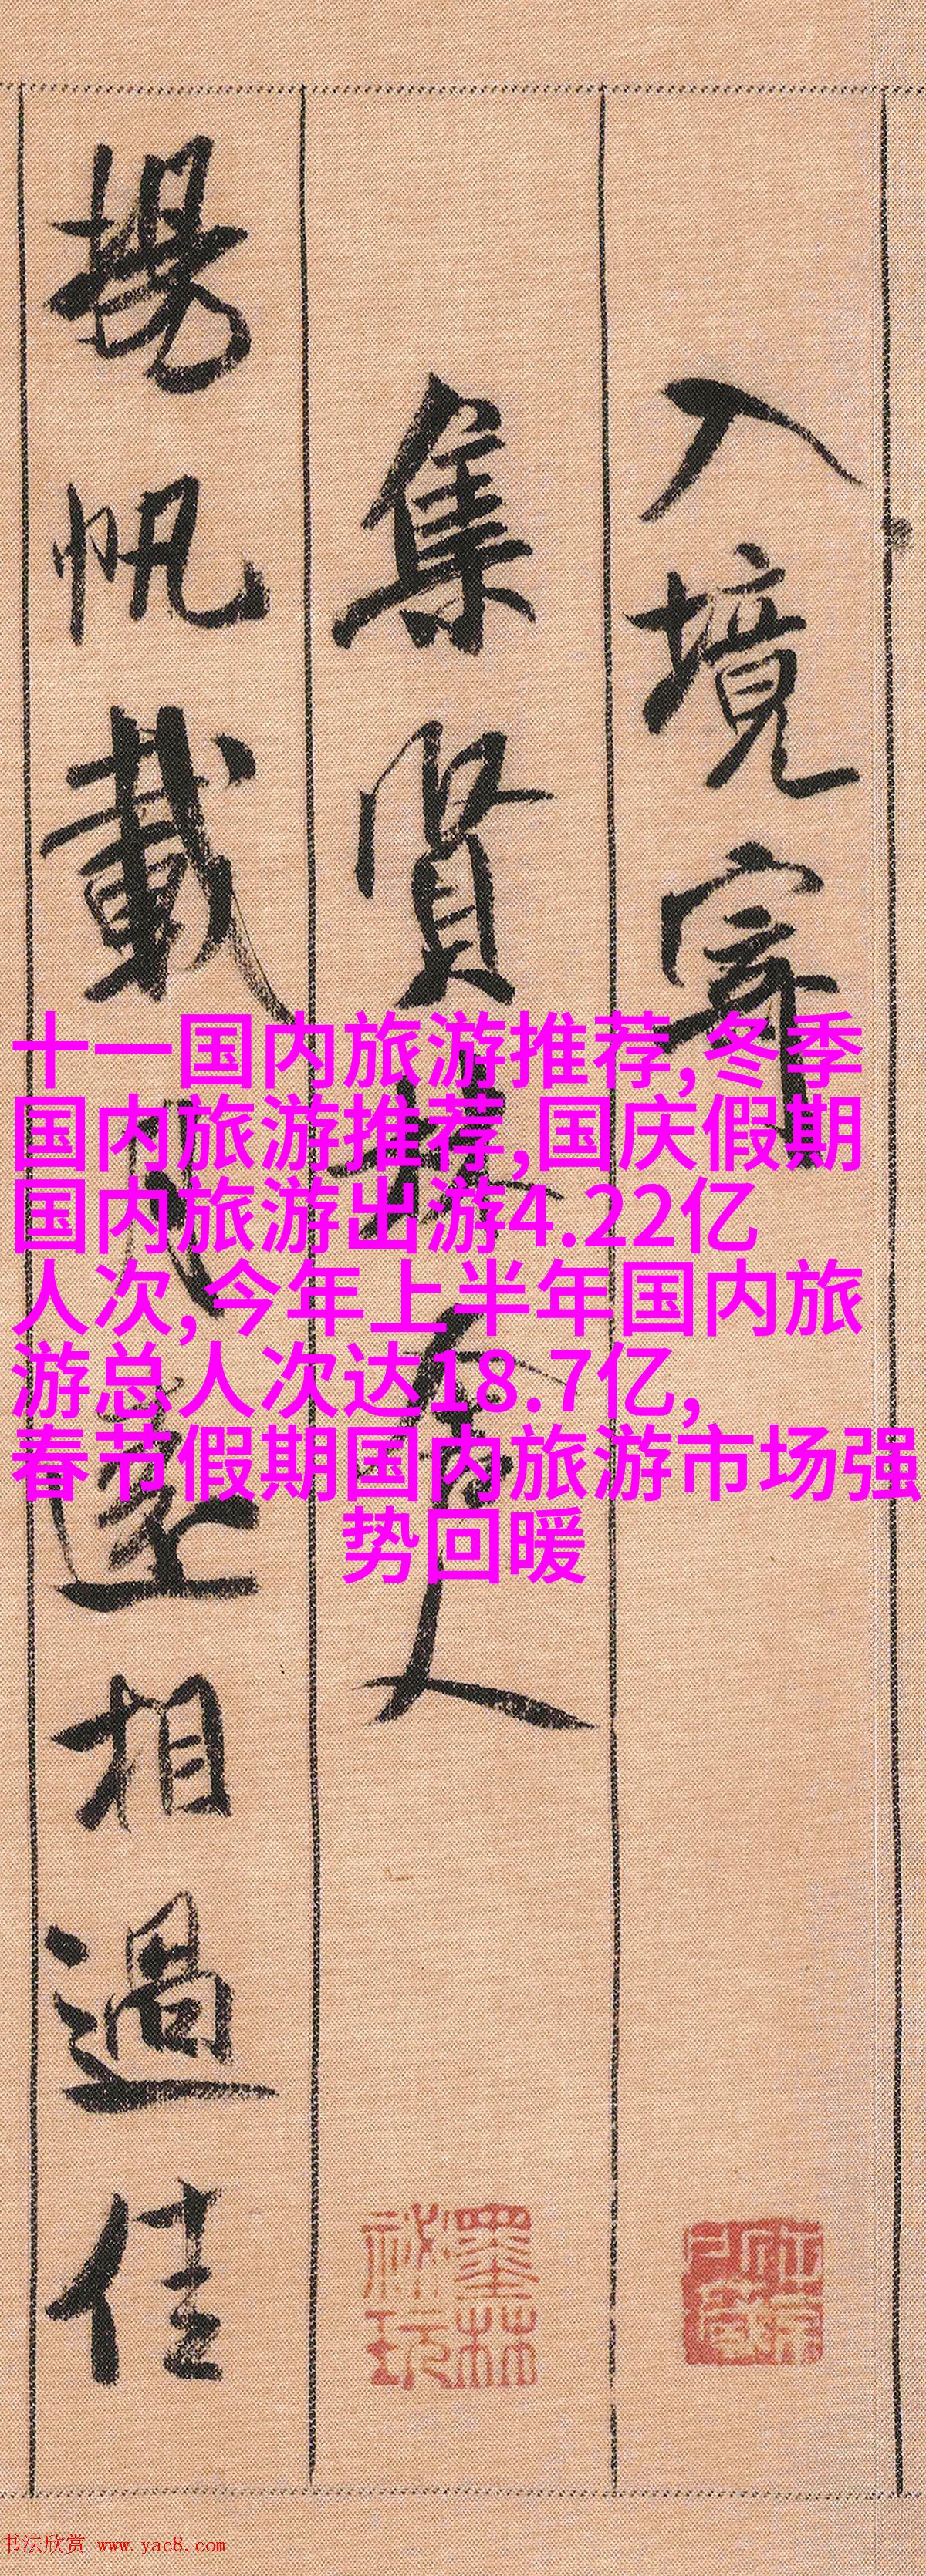 入境寄
集賢林舍人
揚帆載月遠相過佳
十一国内旅游推荐,冬季
国内旅游推荐,国庆假期
国内旅游出游4.22亿
人次,今年上半年国内旅
游总人次达18.7亿,
春节假期国内旅游市场强
势回暖
墨林
祕玩
书法欣赏 www.yac8.com